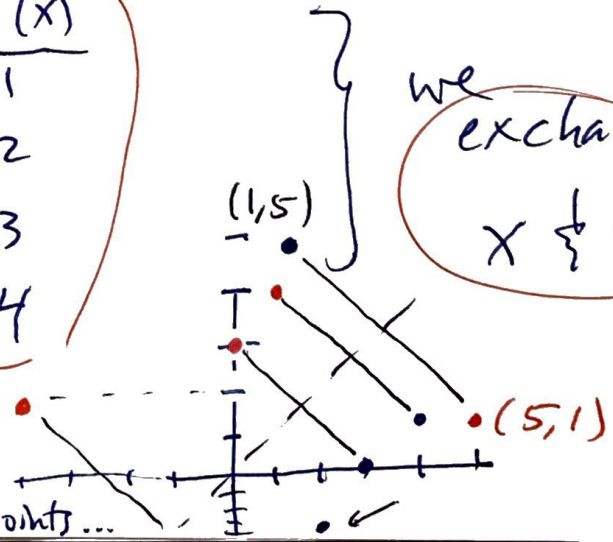 (x)
1
2
3
4
we
excha
x &
(1,5)
(5,1)
oints...